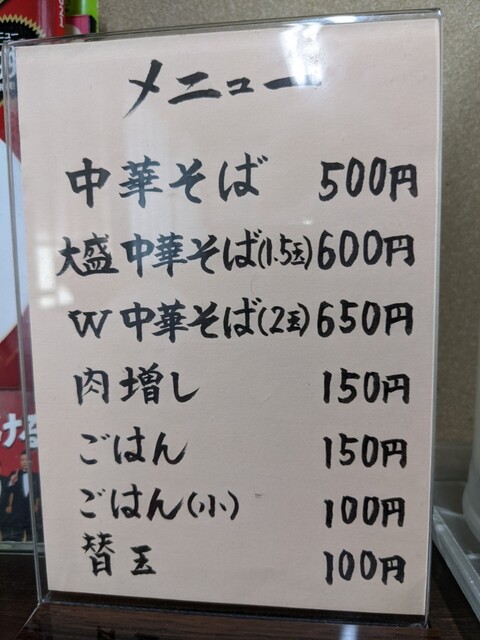 メニュー
中華そば 500円
大盛中華そば(1.5玉)600円
W中華そば(2玉)650円
肉増し 150円
ごはん 150円
ごはん(小) 100円
替玉 100円
ける